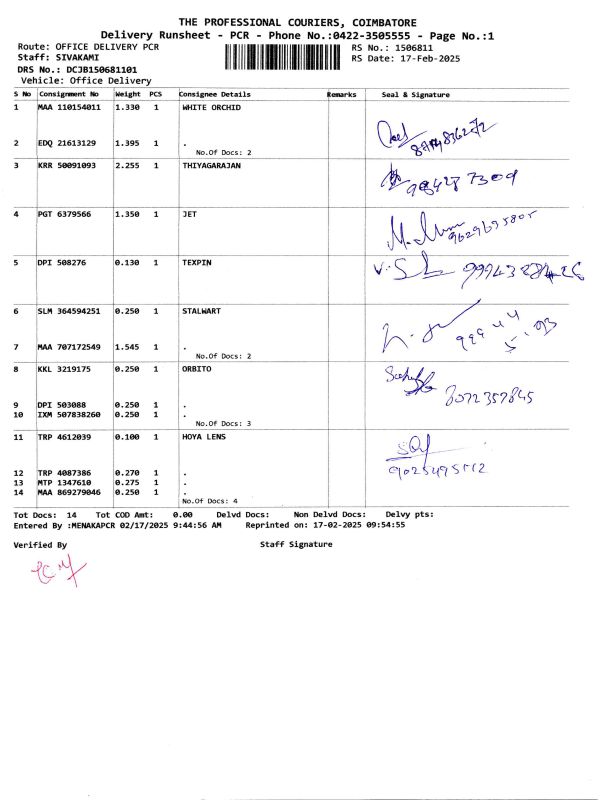 THE PROFESSIONAL COURIERS, COIMBATORE
Delivery Runsheet - PCR - Phone No.:0422-3505555 - Page No.:1
Route: OFFICE DELIVERY PCR RS No.: 1506811
Staff: SIVAKAMI RS Date: 17-Feb-2025
DRS No.: DCJB150681101
Vehicle: Office Delivery
S No Consignment No Weight PCS Consignee Details Remarks Seal & Signature
1 MAA 110154011 1.330 1 WHITE ORCHID
2 EDQ 21613129 1.395 1 .
No.Of Docs: 2
3 KRR 50091093 2.255 1 THIYAGARAJAN
4 PGT 6379566 1.350 1 JET
9629695805
5 DPI 508276 0.130 1 TEXPIN
6 SLM 364594251 0.250 1 STALWART
7 MAA 707172549 1.545 1 .
No.Of Docs: 2
8 KKL 3219175 0.250 1 ORBITO
8072357845
9 DPI 503088 0.250 1 .
10 IXM 507838260 0.250 1 .
No.Of Docs: 3
11 TRP 4612039 0.100 1 HOYA LENS
12 TRP 4087386 0.270 1 .
13 MTP 1347610 0.275 1 .
14 MAA 869279046 0.250 1 .
No.Of Docs: 4
Tot Docs: 14 Tot COD Amt: 0.00 Delvd Docs: Non Delvd Docs: Delvy pts:
Entered By :MENAKAPCR 02/17/2025 9:44:56 AM Reprinted on: 17-02-2025 09:54:55
Verified By Staff Signature